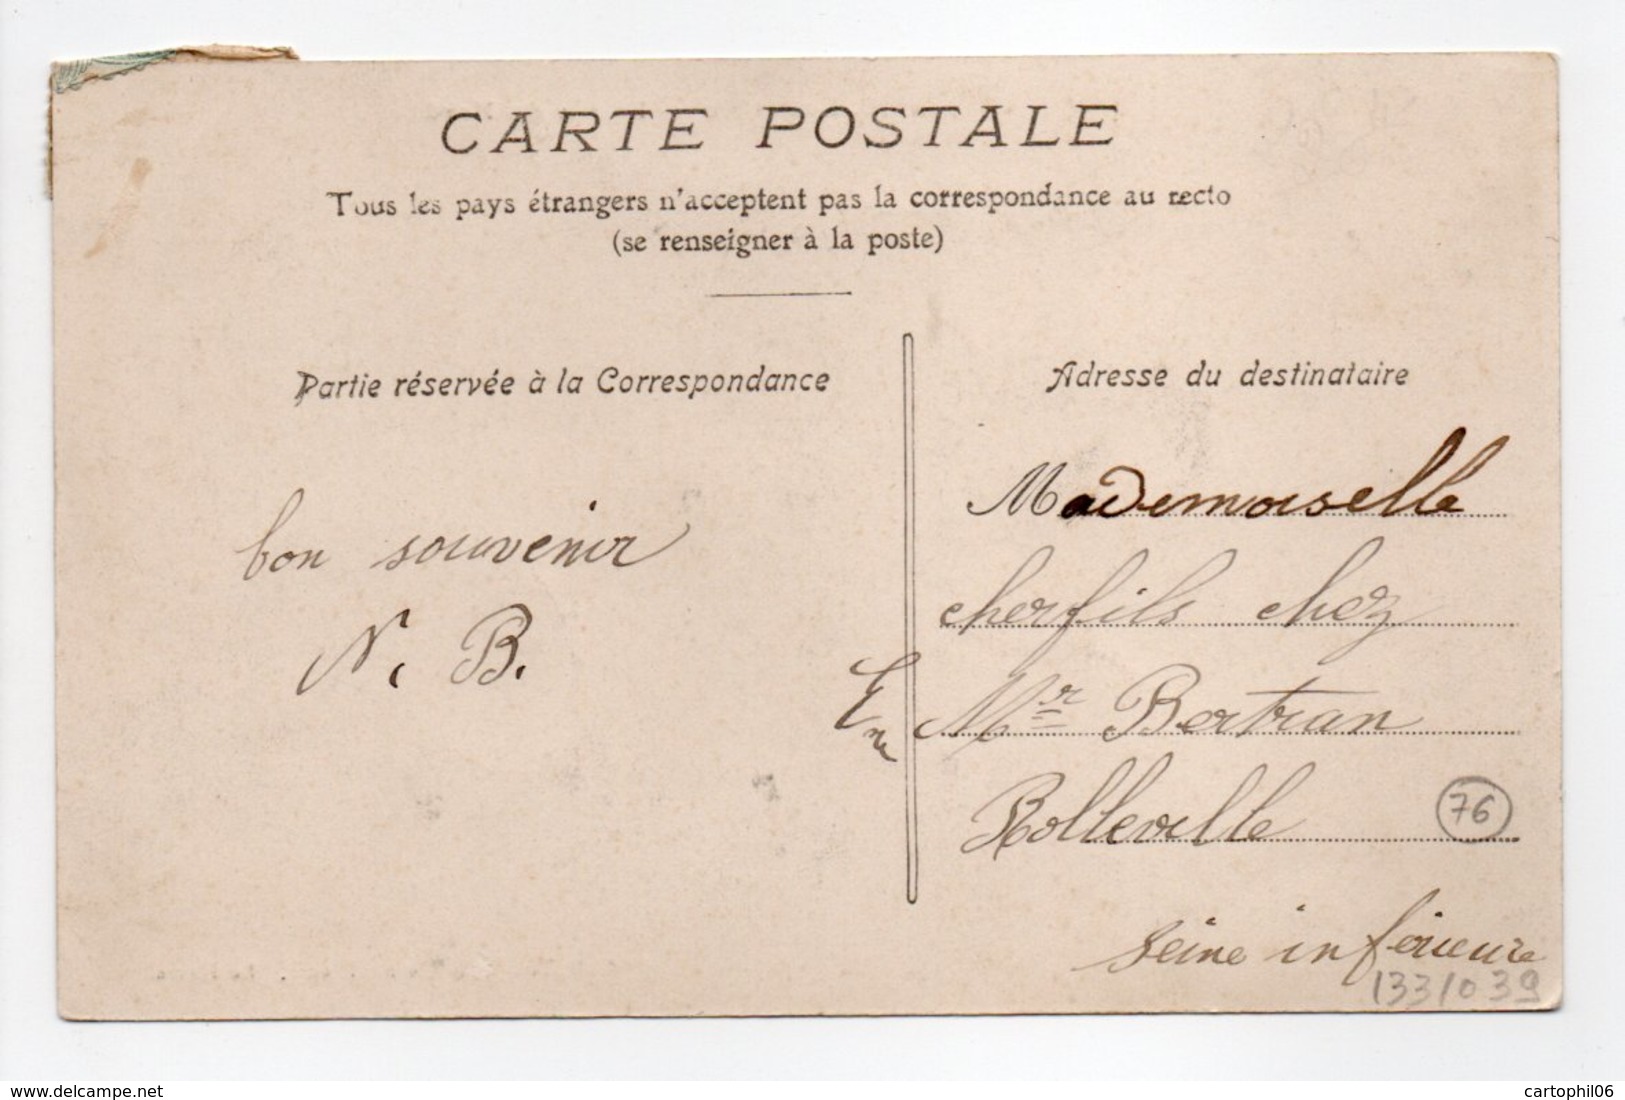 CARTE POSTALE
Tous les pays étrangers n'acceptent pas la correspondance au recto
(se renseigner à la poste)
Partie réservée à la Correspondance
bon souvenir
N. B.
Adresse du destinataire
Mademoiselle
cherfils chez
Mr Bertran
Rolleville
76
seine inférieure
1331039
www.delcampe.net
cartophil06